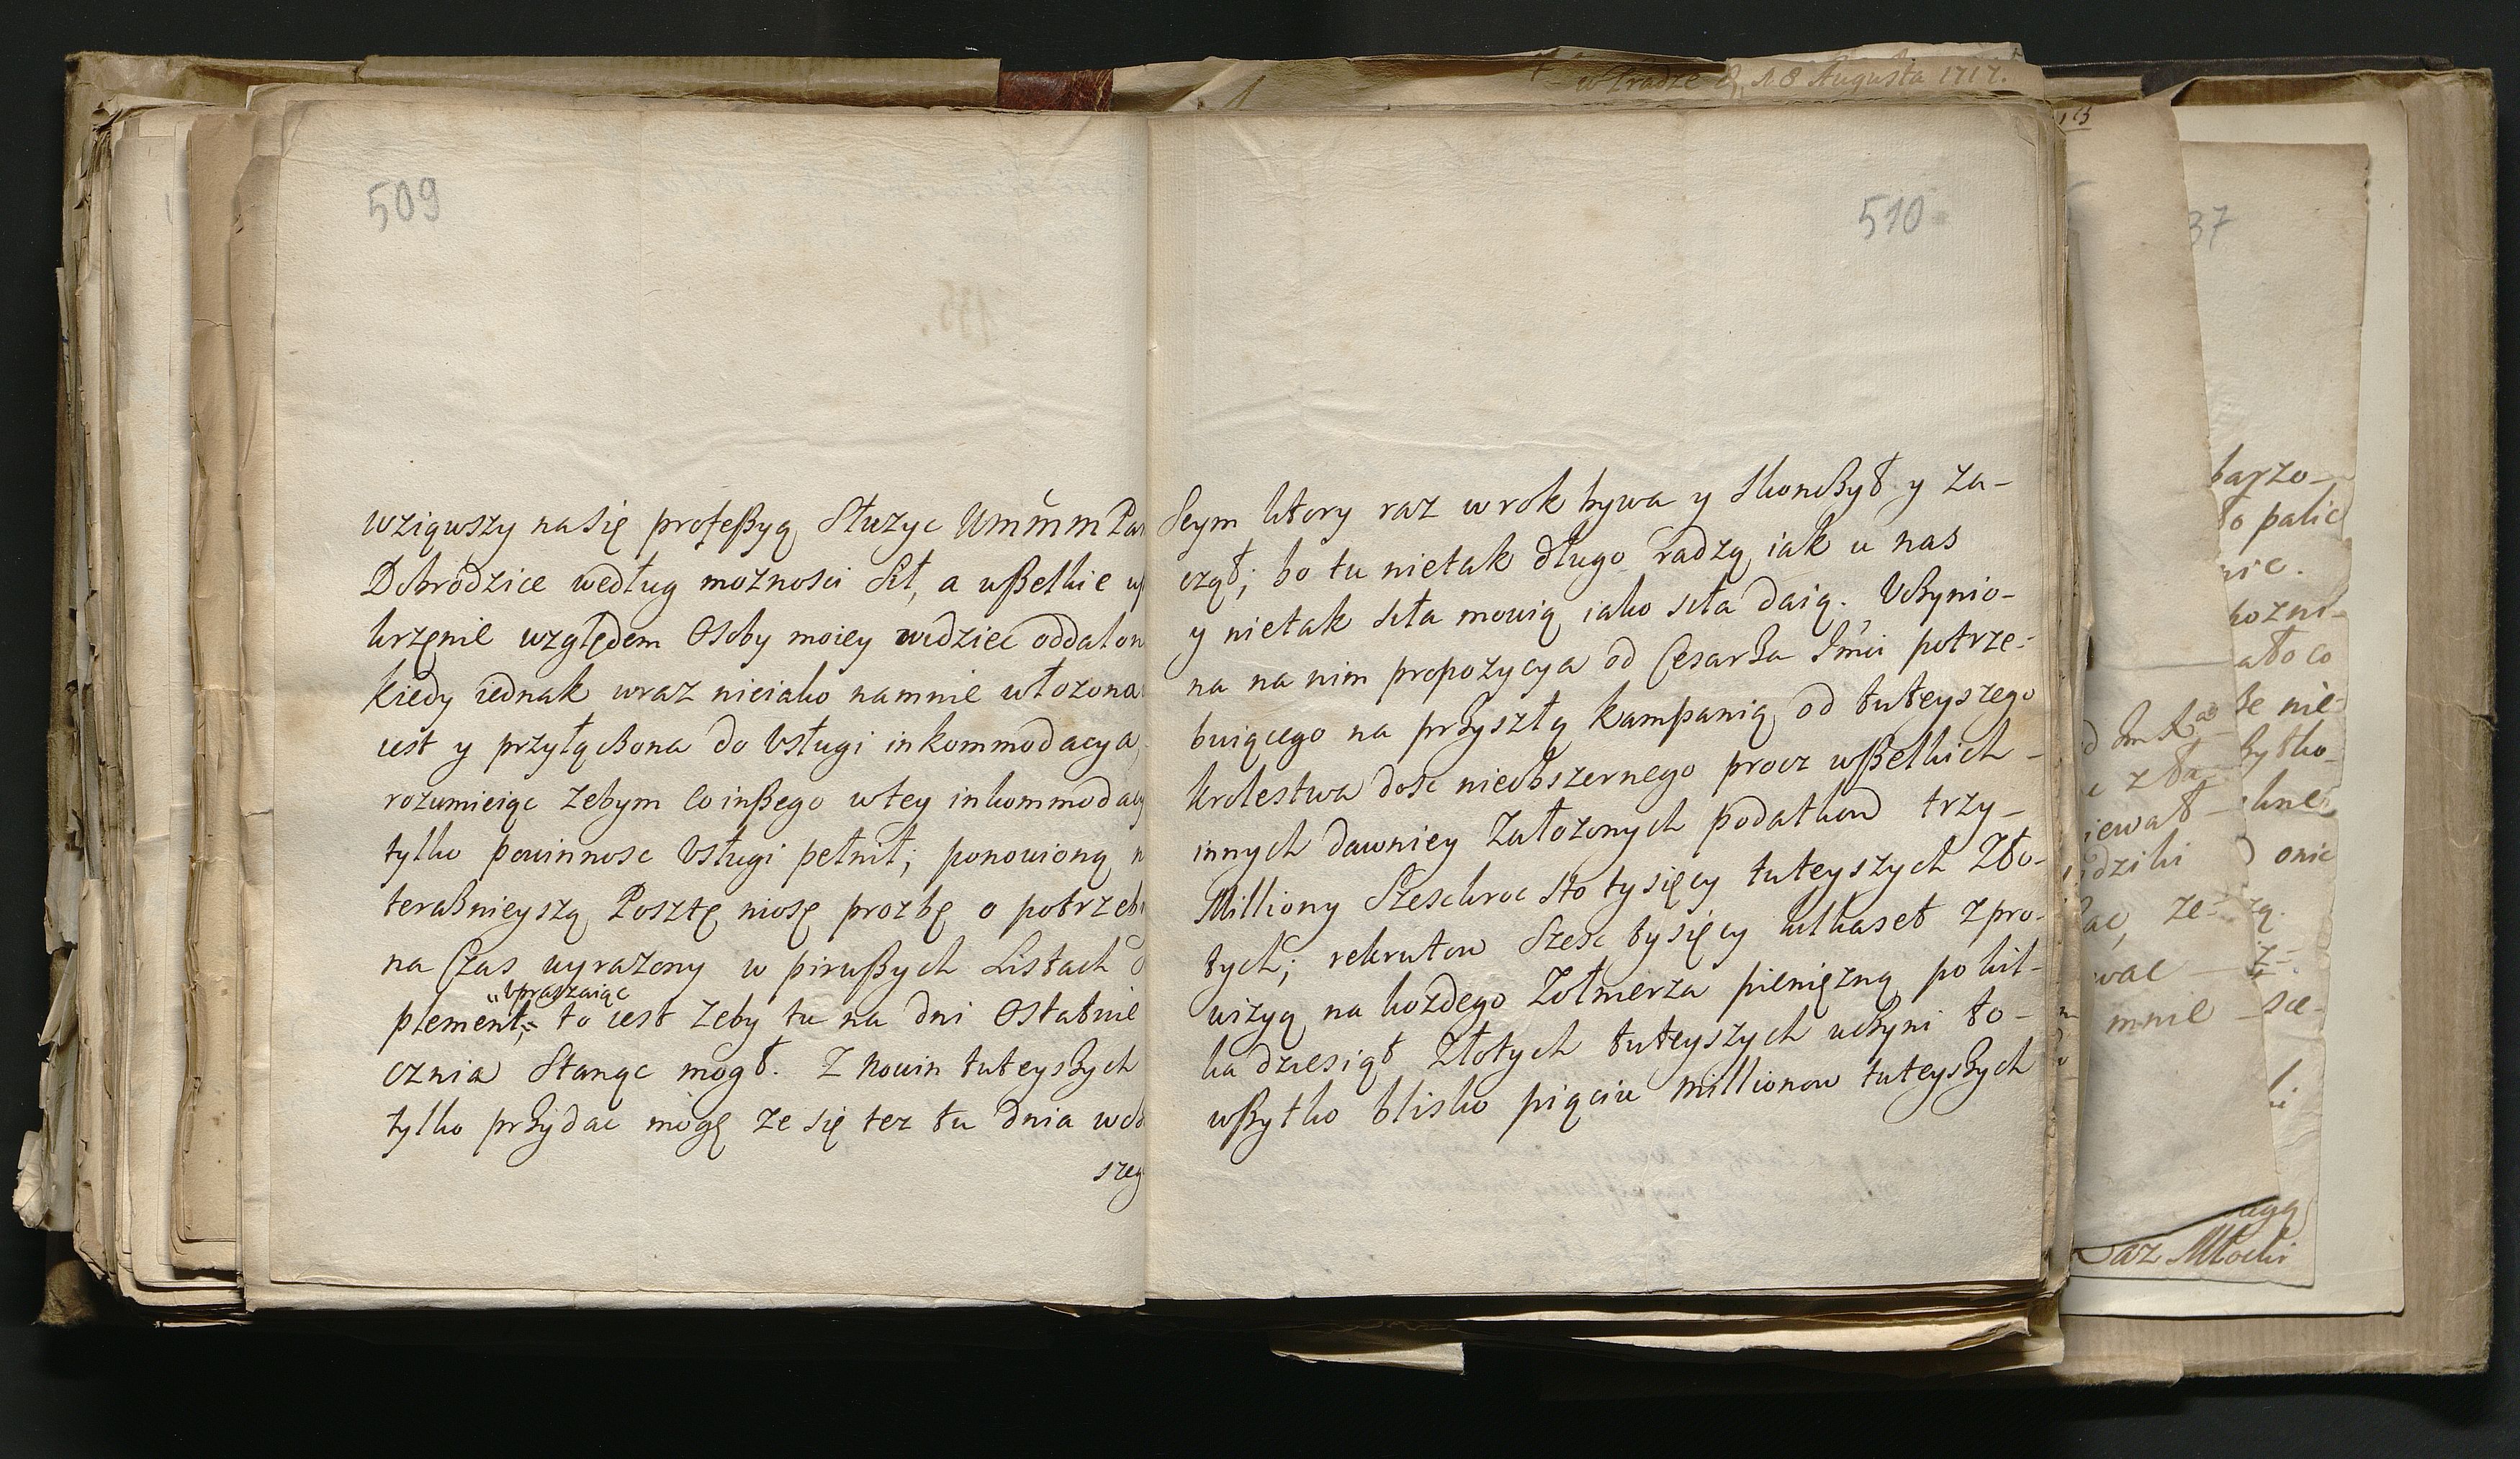 w Pradze d. 18 Augusta 1717.
509
wziąwszy na się profeßyą Służyc Ummm Pan
Dobrodzice według moznosci Sił, a wßelkie
krzęnie względem Osoby moiey widziec oddalon
kiedy iednak wraz nieiako namnie włozona
iest y przyłączona do Usługi inkommodacya,
rozumieiąc zebym co inßego wtey inkommodacy
tylko powinnosc Usługi pełnił; ponowioną
teraznieyszą Posztę niosę prozbę o potrzeb
na Czas wyrazony w pirwßych Listach
"Upraszaiąc
plement; to iest zeby tu na dni Ostatnie
cznia Stanąc mogł. Z Nowin tuteyszych
tylko przydac mogę ze się tez tu dnia wczo
szeg
510
Seym ktory raz w rok bywa y skonczył y za-
czął; bo tu nietak długo radzą iak u nas
y nietak siła mowią iako siła daią. Uczynio-
na na nim propozycya od Cesarza Jmci potrze-
buiącego na przyszłą kampanią od tuteyszego
krolestwa dosc nieobszernego procz wßelkich -
innych dawniey załozonych podatkow trzy-
Milliony Szesckroc sto tysięcy tuteyszych Zło-
tych; rekrutow Szesc tysięcy kilkaset z pro-
wizyą na kozdego Zołmierza pienięzną po kil-
ka dziesiąt Złotych tuteyszych uczyni to-
wßytko blisko pięciu millionow tuteyszych
37
barzo-
to palic
nic.
ało co
onic
mnie
Młocki